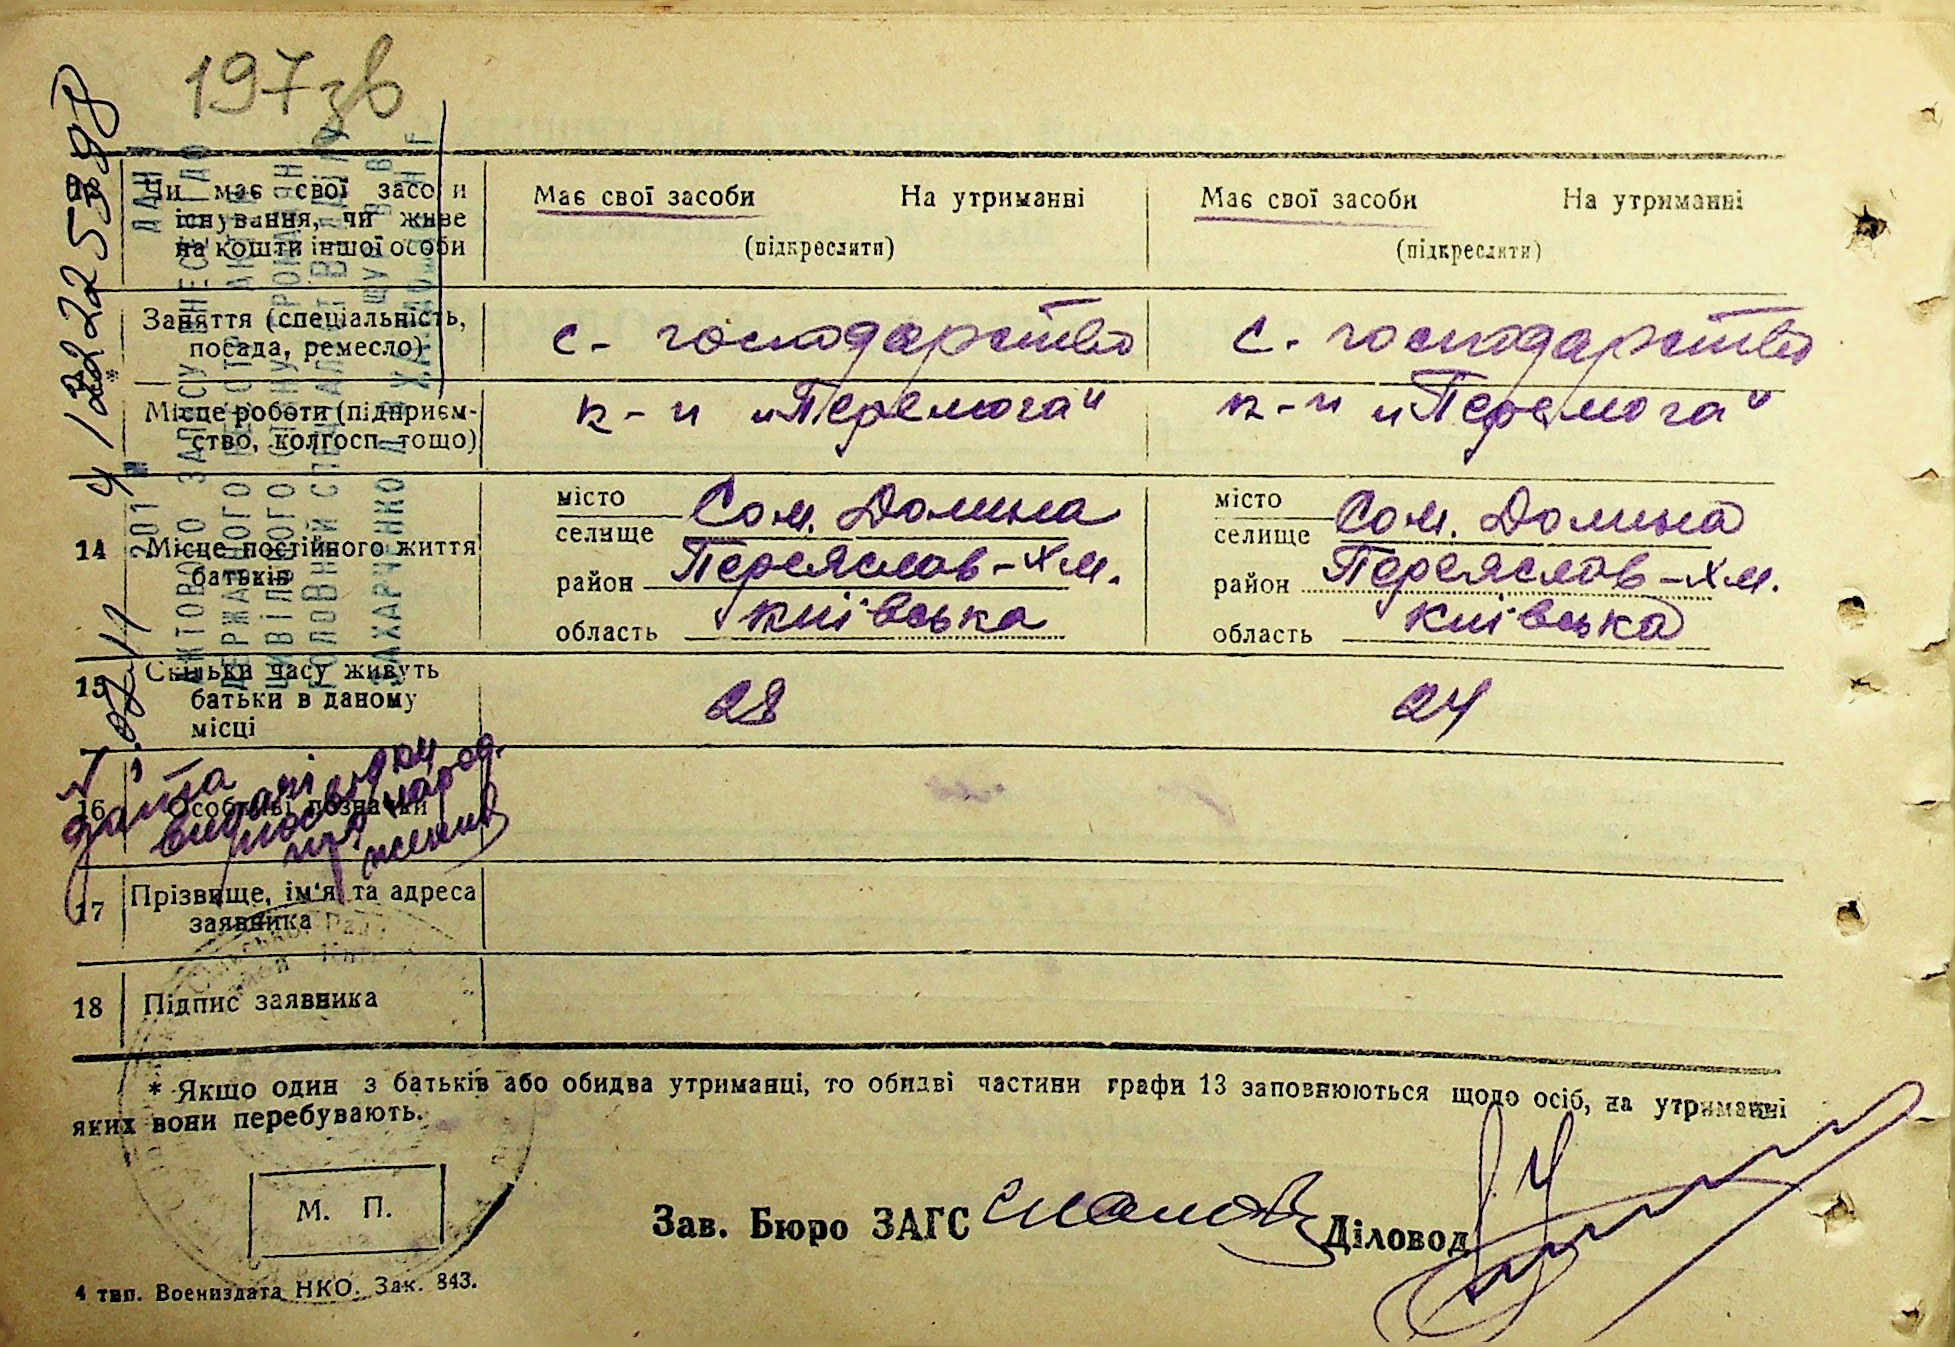 197зв
Чи має свої засоби
існування, чи живе
на кошти іншої особи
Має свої засоби На утриманні
(підкреслити)
Має свої засоби На утриманні
(підкреслити)
Заняття (спеціальність,
посада, ремесло)
с - господарство
с. господарство
Місце роботи (підприєм-
ство, колгосп тощо)
к-п „Перемога“
к-п „Перемога“
14 Місце постійного життя
батьків
місто
селище Сом. Долина
район Переяслов-Хм.
область Київська
місто
селище Сом. Долина
район Переяслов-Хм.
область Київська
15 Скільки часу живуть
батьки в даному
місці
28
24
16 Особливі позначки
дата
видачі
посвідки
про народ.
ження
17 Прізвище, ім'я та адреса
заявника
18 Підпис заявника
* Якщо один з батьків або обидва утриманці, то обидві частини графи 13 заповнюються щодо осіб, на утриманні
яких вони перебувають.
М. П.
Зав. Бюро ЗАГС
Діловод
4 тип. Воениздата НКО. Зак. 843.